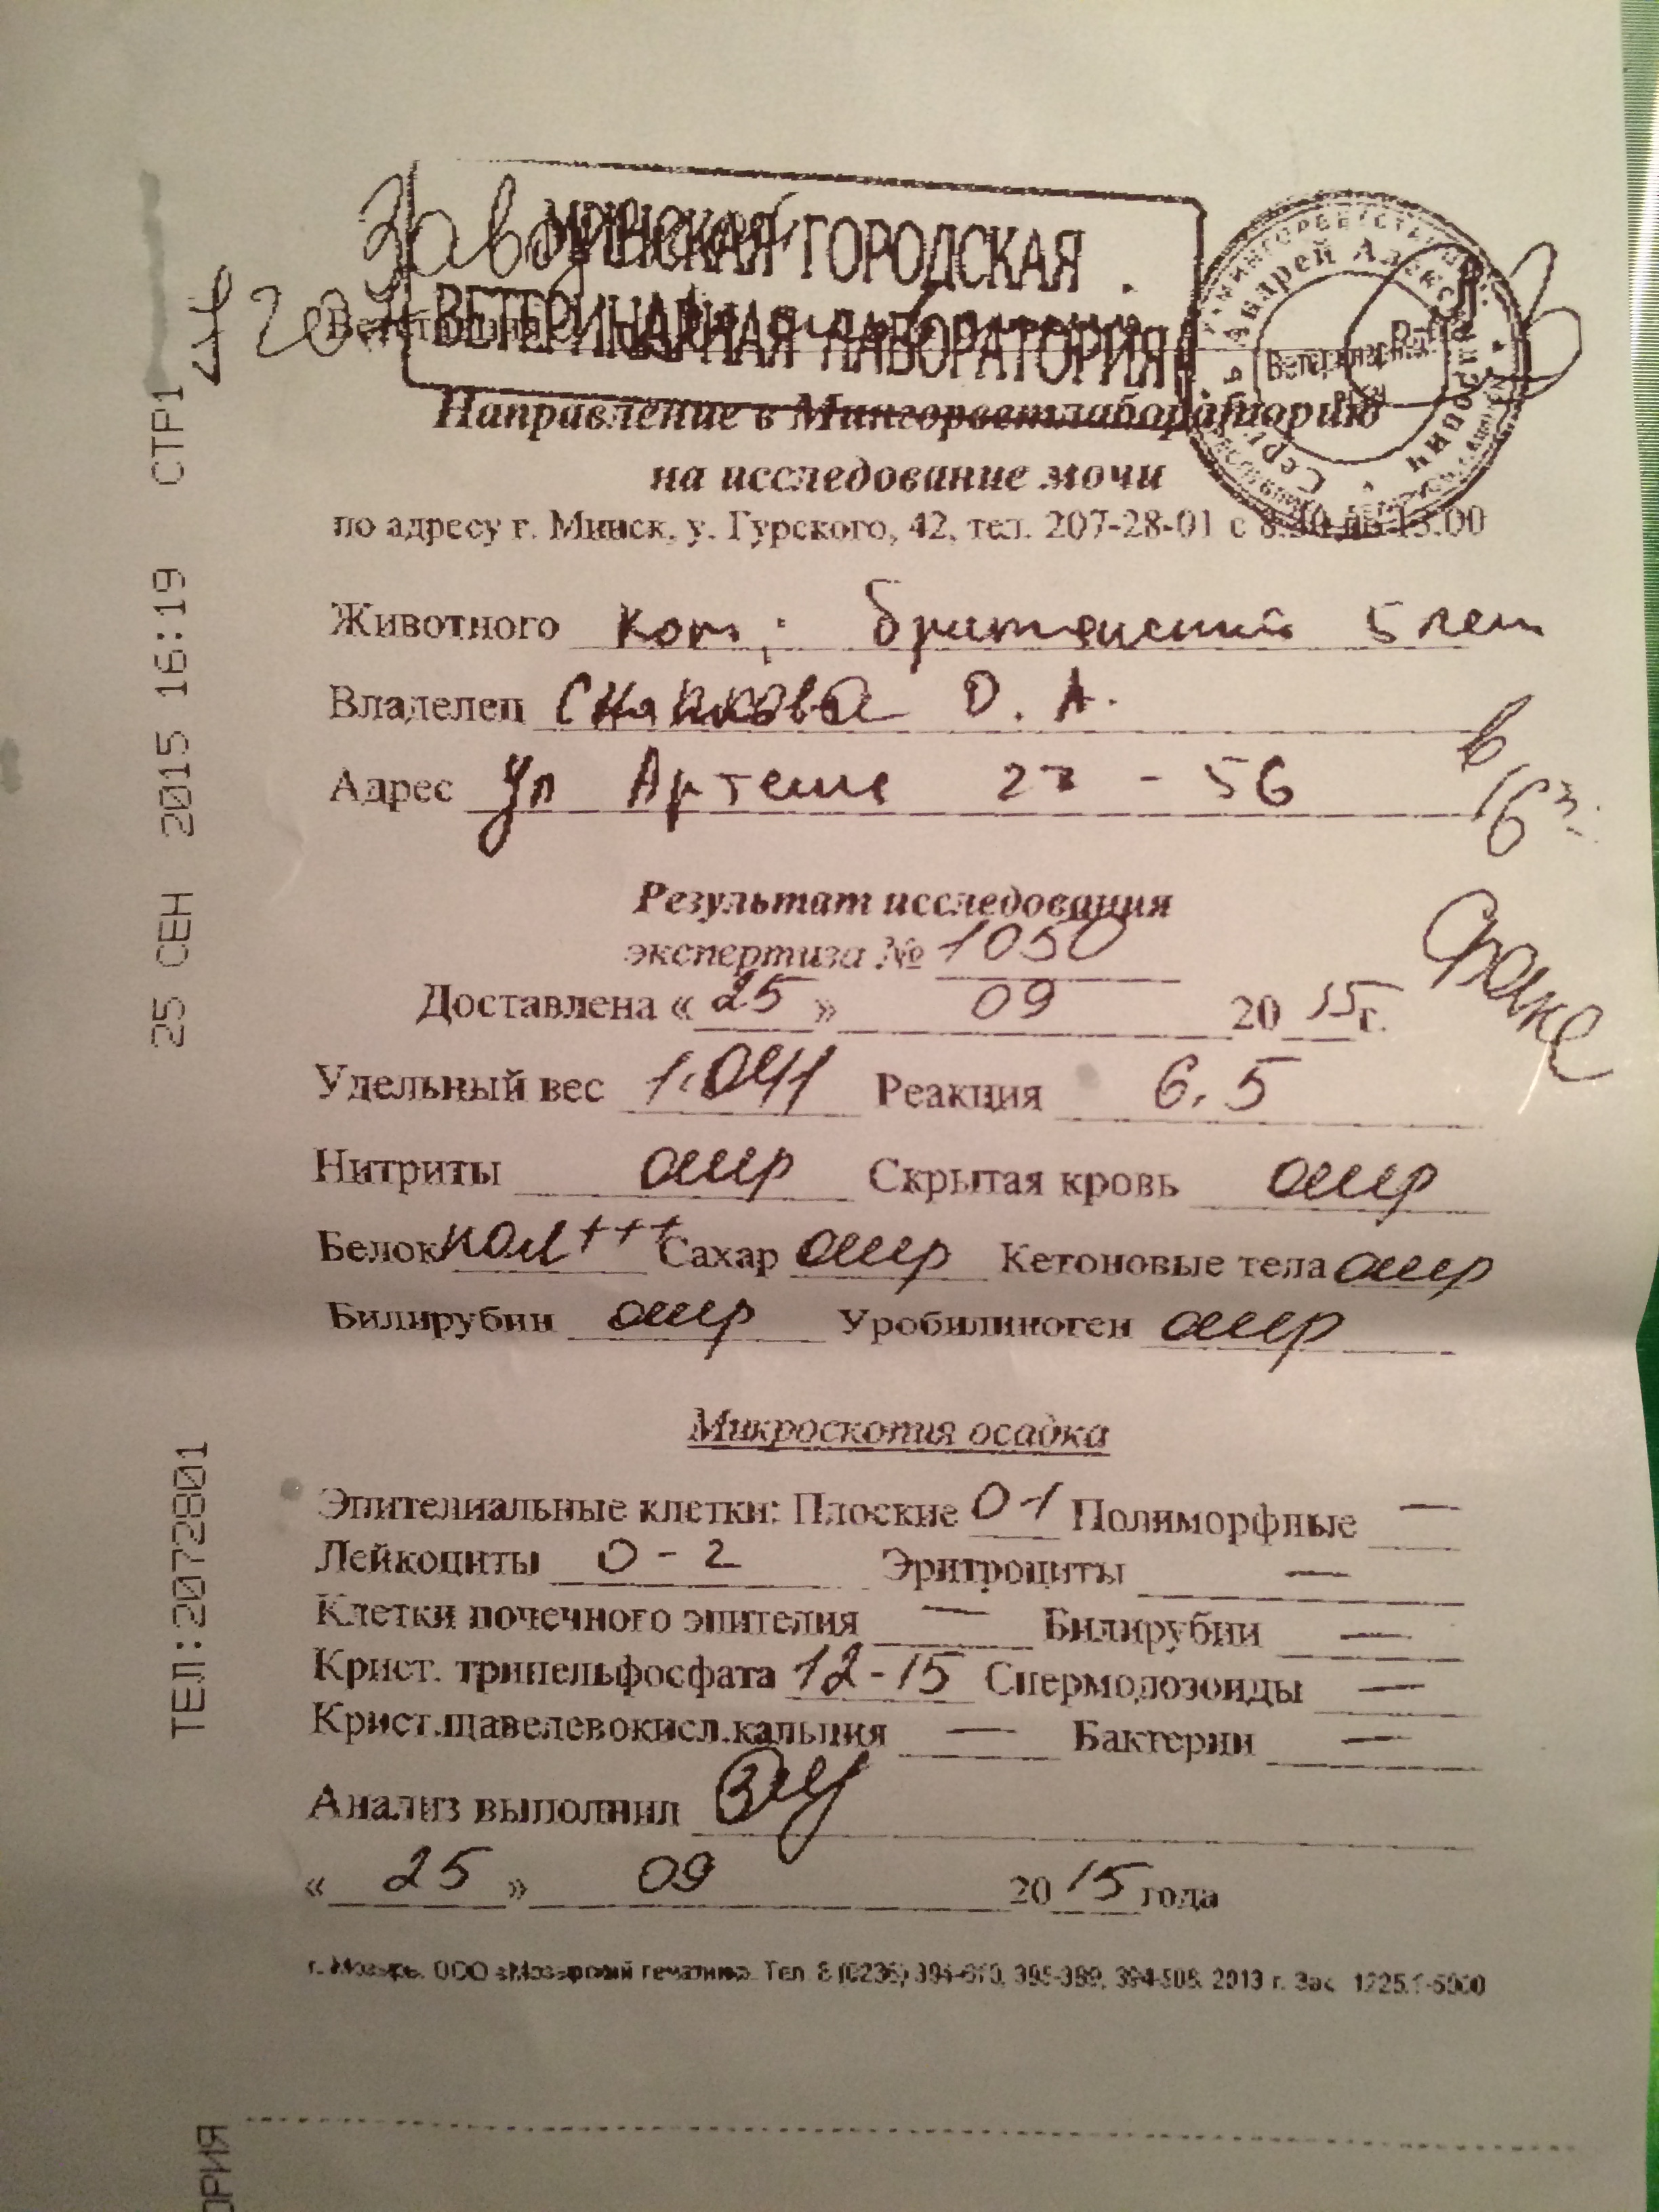 МИНСКАЯ ГОРОДСКАЯ
ВЕТЕРИНАРНАЯ ЛАБОРАТОРИЯ
Направление в Мингорветлабораторию
на исследование мочи
по адресу г. Минск, у. Гурского, 42, тел. 207-28-01 с 8.30 до 13.00
Животного кот; британский 5 лет
Владелец О. А.
Адрес ул 27 - 56
в 16
Результат исследования
экспертиза № 1050
Факс
Доставлена « 25 » 09 20 15 г.
Удельный вес 1.041 Реакция 6,5
Нитриты отр Скрытая кровь отр
Белок пол +++ Сахар отр Кетоновые тела отр
Билирубин отр Уробилиноген отр
Микроскопия осадка
Эпителиальные клетки: Плоские 0-1 Полиморфные —
Лейкоциты 0-2 Эритроциты —
Клетки почечного эпителия — Билирубин —
Крист. трипельфосфата 12-15 Спермодозоиды —
Крист.щавелевокисл.кальция — Бактерии —
Анализ выполнил
« 25 » 09 20 15 года
г. Мозырь. ООО «Мозырский печатник». Тел. 8 (0236) 2013 г. Зак. 1225.1-5000
25 СЕН 2015 16:19 СТР1
ТЕЛ:2072801
ОРИЯ